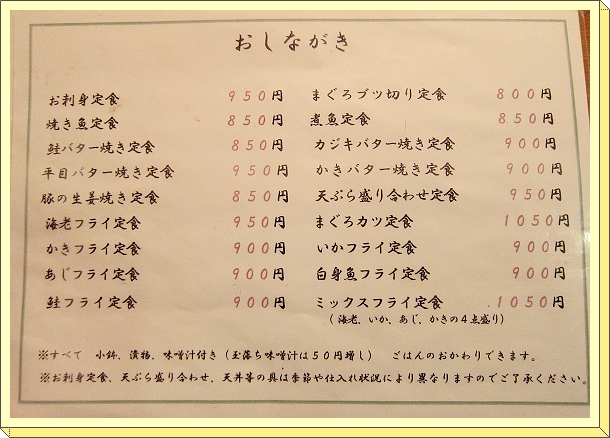 おしながき
お刺身定食 950円 まぐろブツ切り定食 800円
焼き魚定食 850円 煮魚定食 850円
鮭バター焼き定食 850円 カジキバター焼き定食 900円
平目バター焼き定食 950円 かきバター焼き定食 900円
豚の生姜焼き定食 850円 天ぷら盛り合わせ定食 950円
海老フライ定食 950円 まぐろカツ定食 1050円
かきフライ定食 900円 いかフライ定食 900円
あじフライ定食 900円 白身魚フライ定食 900円
鮭フライ定食 900円 ミックスフライ定食 1050円
(海老、いか、あじ、かきの4点盛り)
※すべて 小鉢、漬物、味噌汁付き(玉落ち味噌汁は50円増し) ごはんのおかわりできます。
※お刺身定食、天ぷら盛り合わせ、天丼等の具は季節や仕入れ状況により異なりますのでご了承ください。